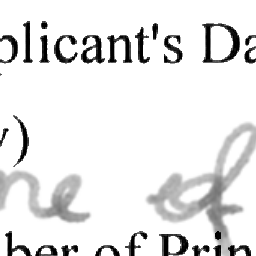 plicant's Da
y)
ne of
ber of Prin